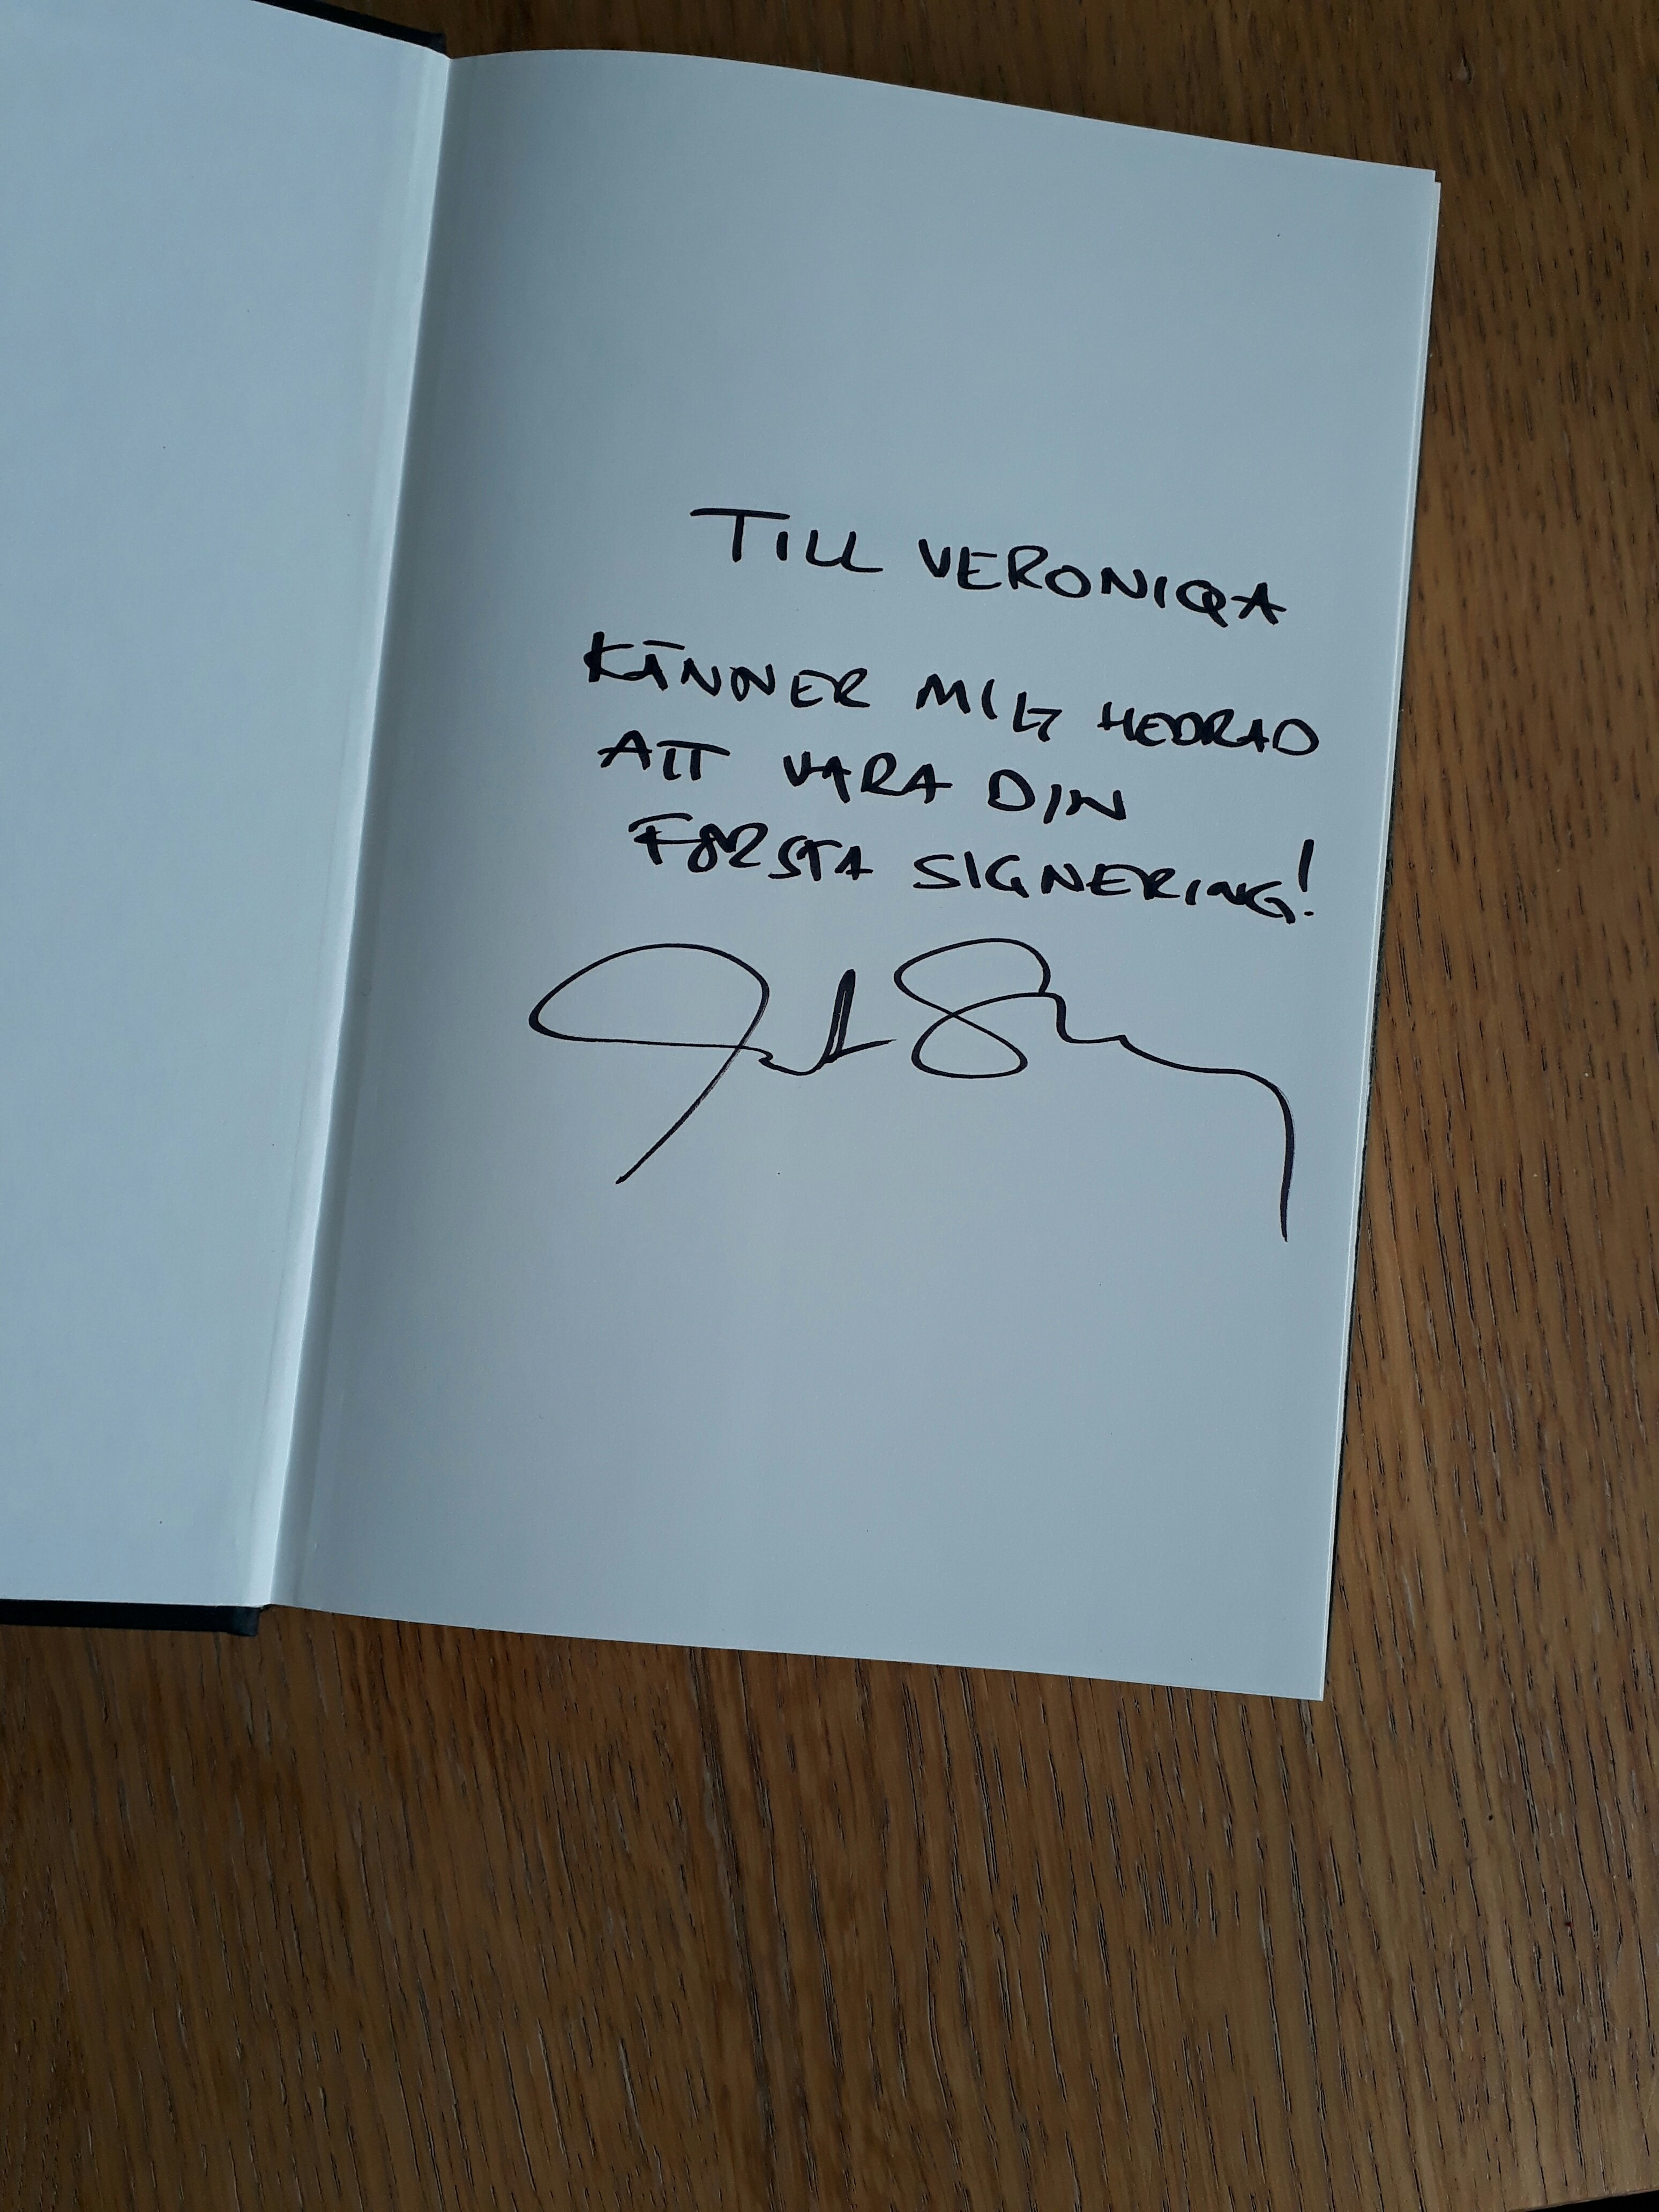 TILL VERONIQA
KÄNNER MIG HEDRAD
ATT VARA DIN
FÖRSTA SIGNERING!